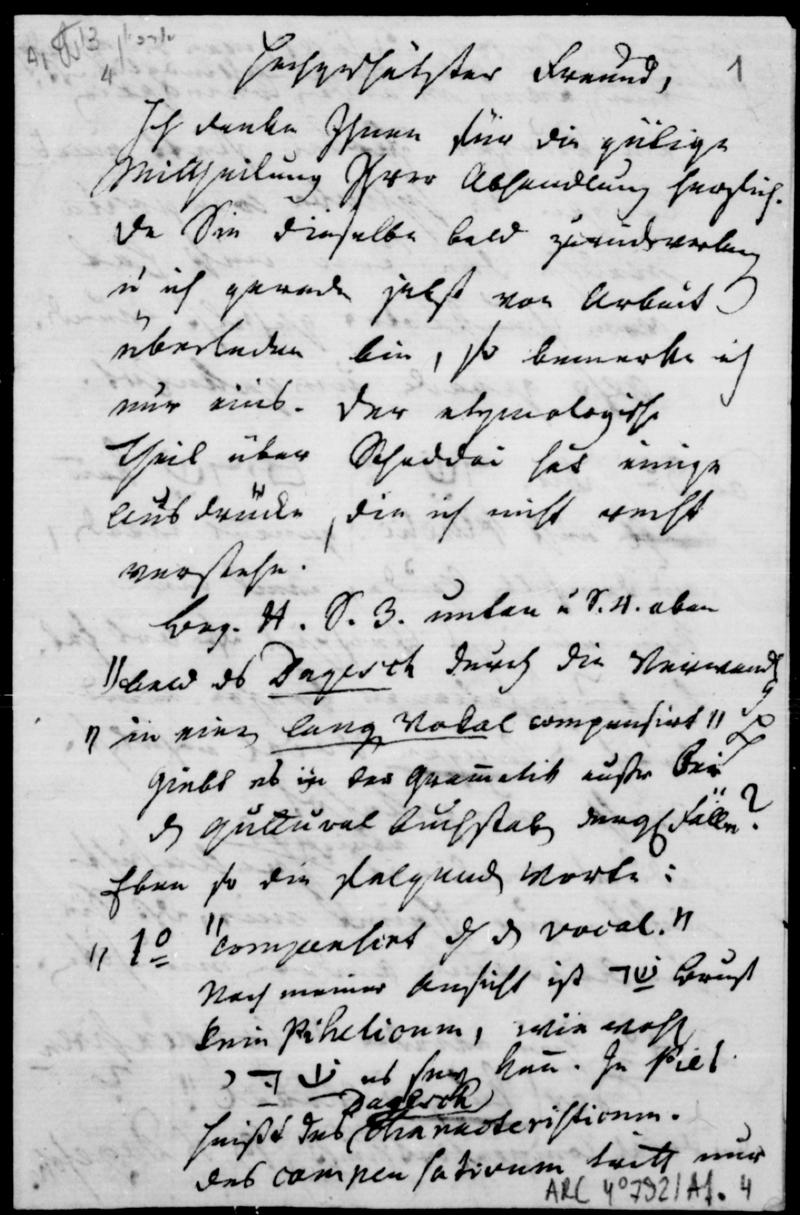 1
4
Hochgeschätzter Freund,
Ich danke Ihnen für die gütige
Mittheilung Ihrer Abhandlung herzlich.
Da Sie dieselbe bald zurückverlang
u ich gerade jetzt von Arbeit
überladen bin, so bemerke ich
nur eins. Der etymologische
Theil über Schaddai hat einige
Ausdrücke, die ich nicht recht
verstehe.
S. 3. unten u S. 4. oben
"bald das Dagesch durch die Verwandl
" in einen lang Vokal compensirt"
Giebt es in der Grammatik außer bei
d guttural Buchstab dergl Fälle?
Eben so die folgend Worte:
" 1º "compensirt d d vocal."
Nach meiner Ansicht ist שַׁד Brust
kein Pihelicum, wie wohl
שַׁדַּי es sein kann. In Piel
heißt das Dagesch Characteristicum.
das compensativum tritt nur
ARC 4º 792/A1. 4